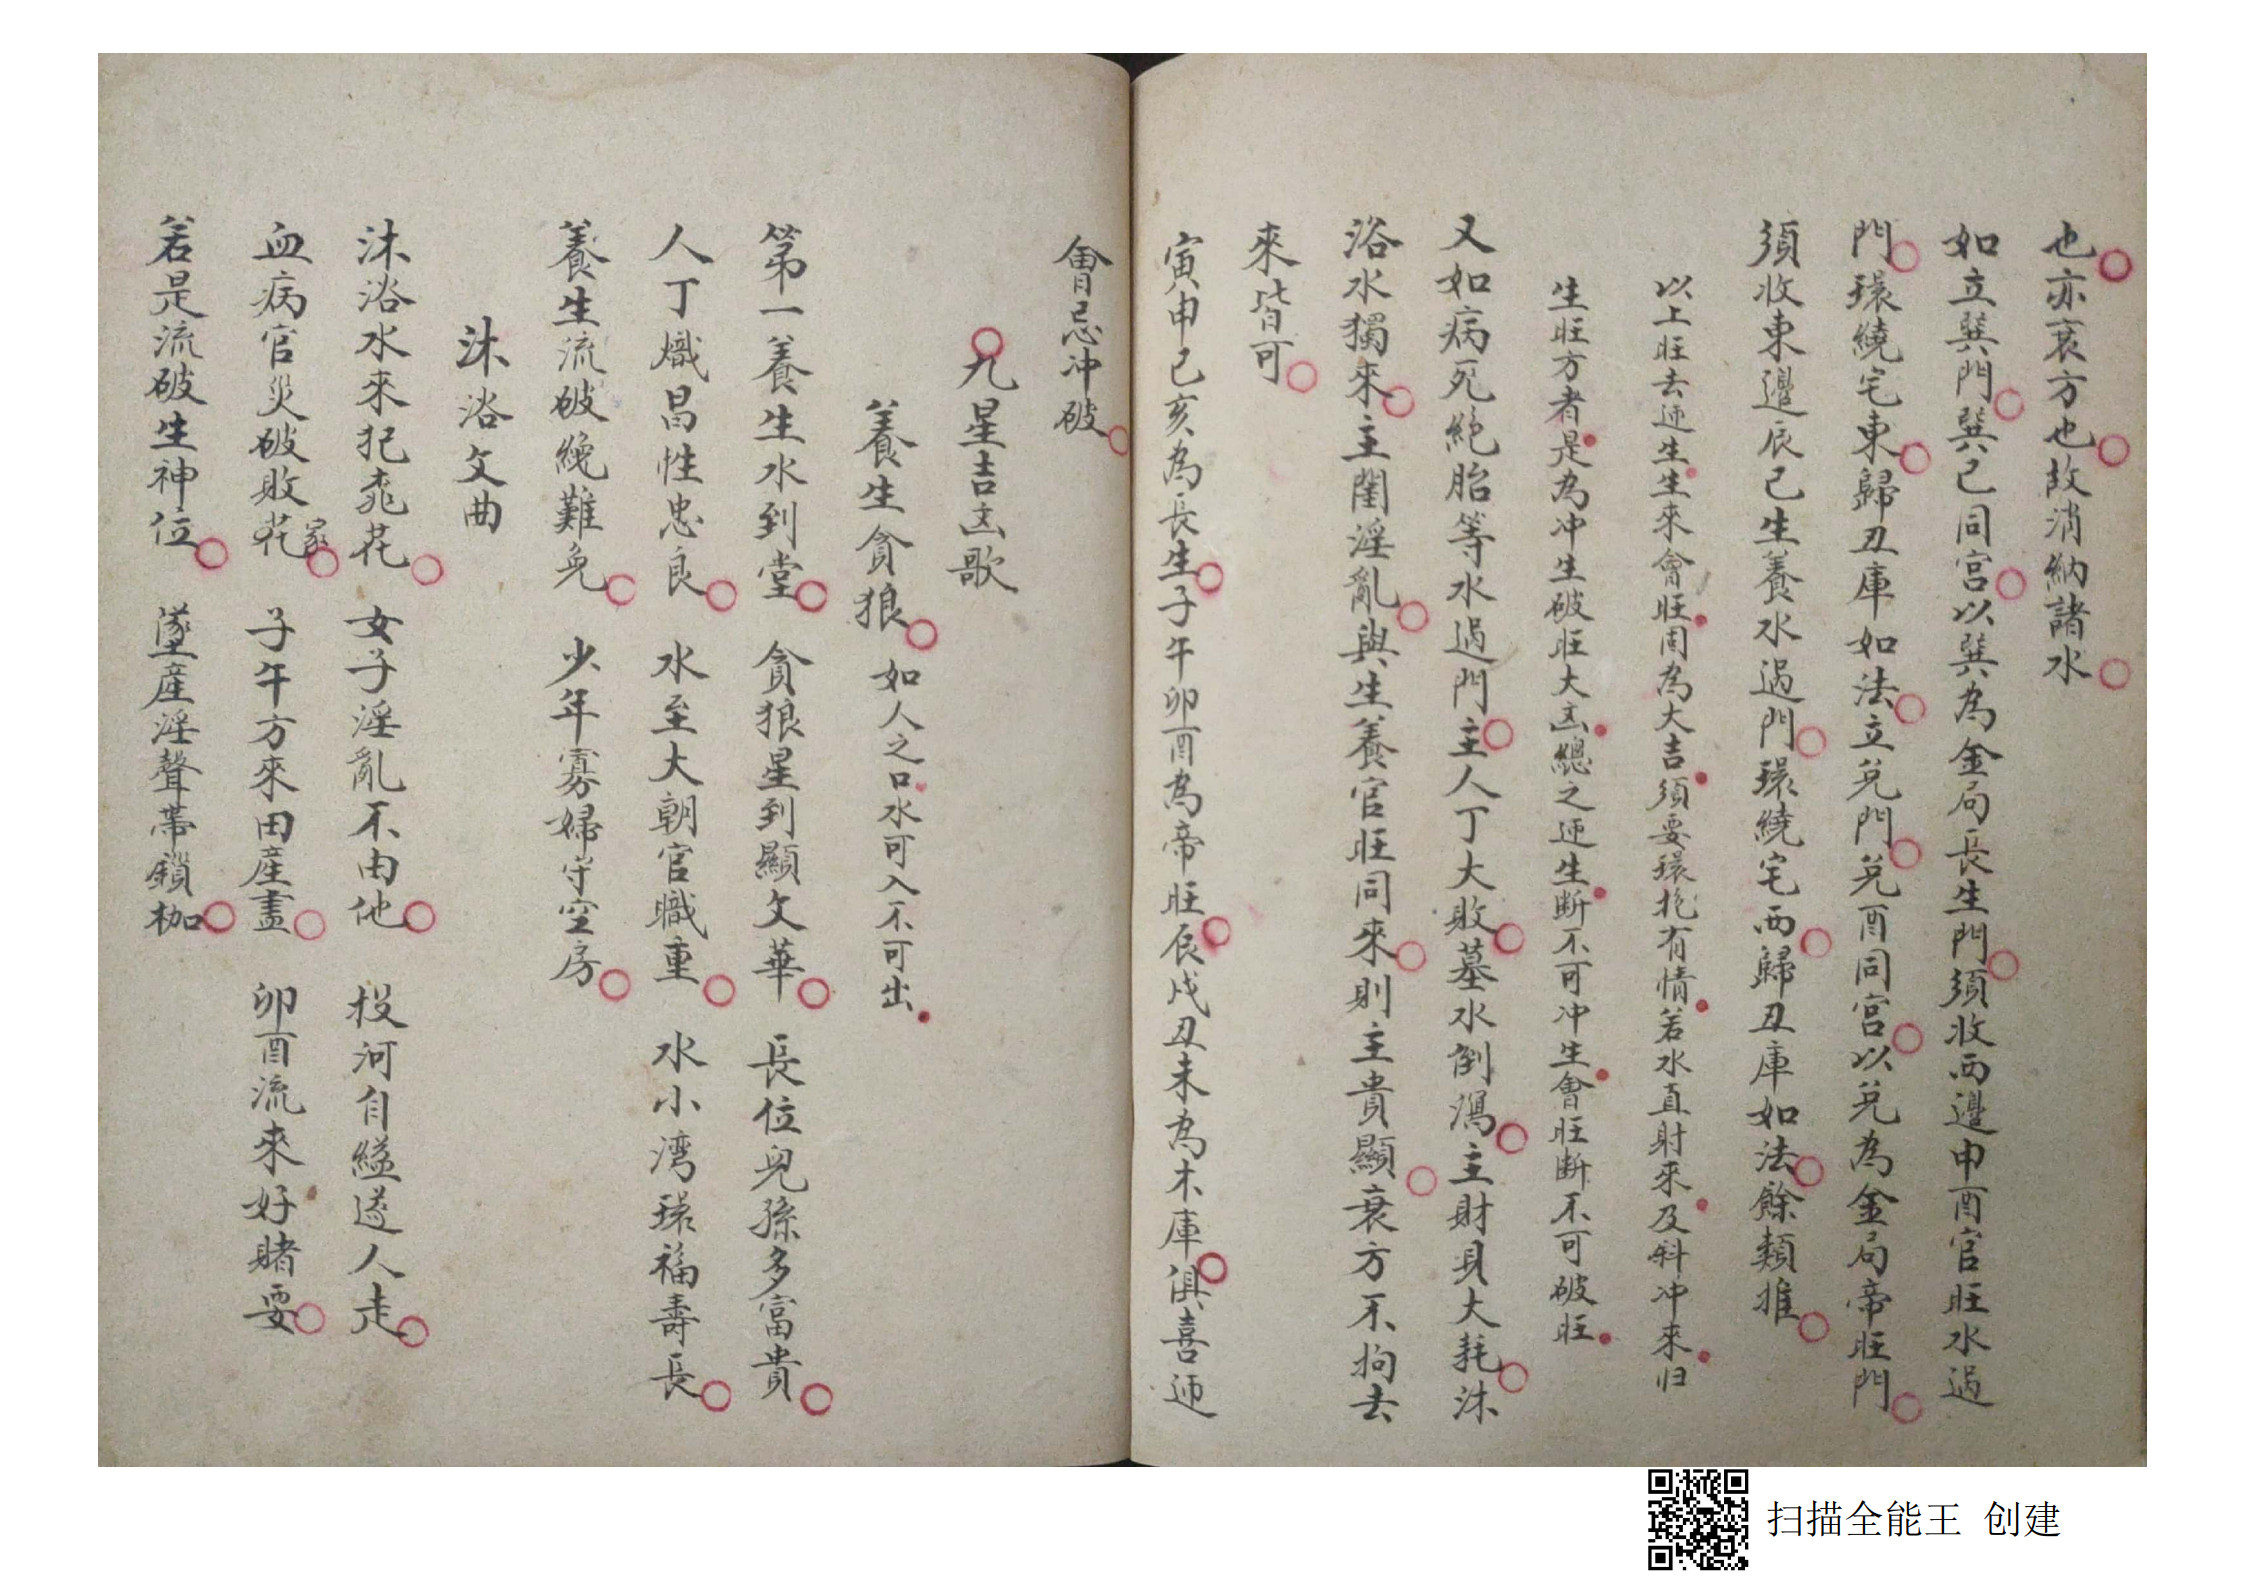 也亦衰方也故消納諸水
如立巽門巽巳同宮以巽為金局長生門須收西邊申酉官旺水過
門環繞宅東歸丑庫如法立兌門兌酉同宮以兌為金局帝旺門
須收東邊辰巳生養水過門環繞宅西歸丑庫如法餘類推
以上旺去迊生生來會旺周為大吉須要環抱有情若水直射來及斜冲來归
生旺方者是為冲生破旺大凶總之迊生斷不可冲生會旺斷不可破旺
又如病死絶胎等水過門主人丁大敗墓水倒瀉主財具大耗沐
浴水獨來主閨淫亂與生養官旺同來則主貴顯衰方不拘去
來皆可
寅申巳亥為長生子午卯酉為帝旺辰戌丑未為木庫俱喜迊
會忌冲破
九星吉凶歌
養生貪狼 如人之口水可入不可出
第一養生水到堂 貪狼星到顯文華 長位兒孫多富貴
人丁熾昌性忠良 水至大朝官職重 水小湾環福壽長
養生流破絶難免 少年寡婦守空房
沐浴文曲
沐浴水來犯桃花 女子淫亂不由他 投河自縊遂人走
血病官災破敗花家 子午方來田產盡 卯酉流來好賭耍
若是流破生神位 墜產淫聲帶鎖枷
扫描全能王 创建